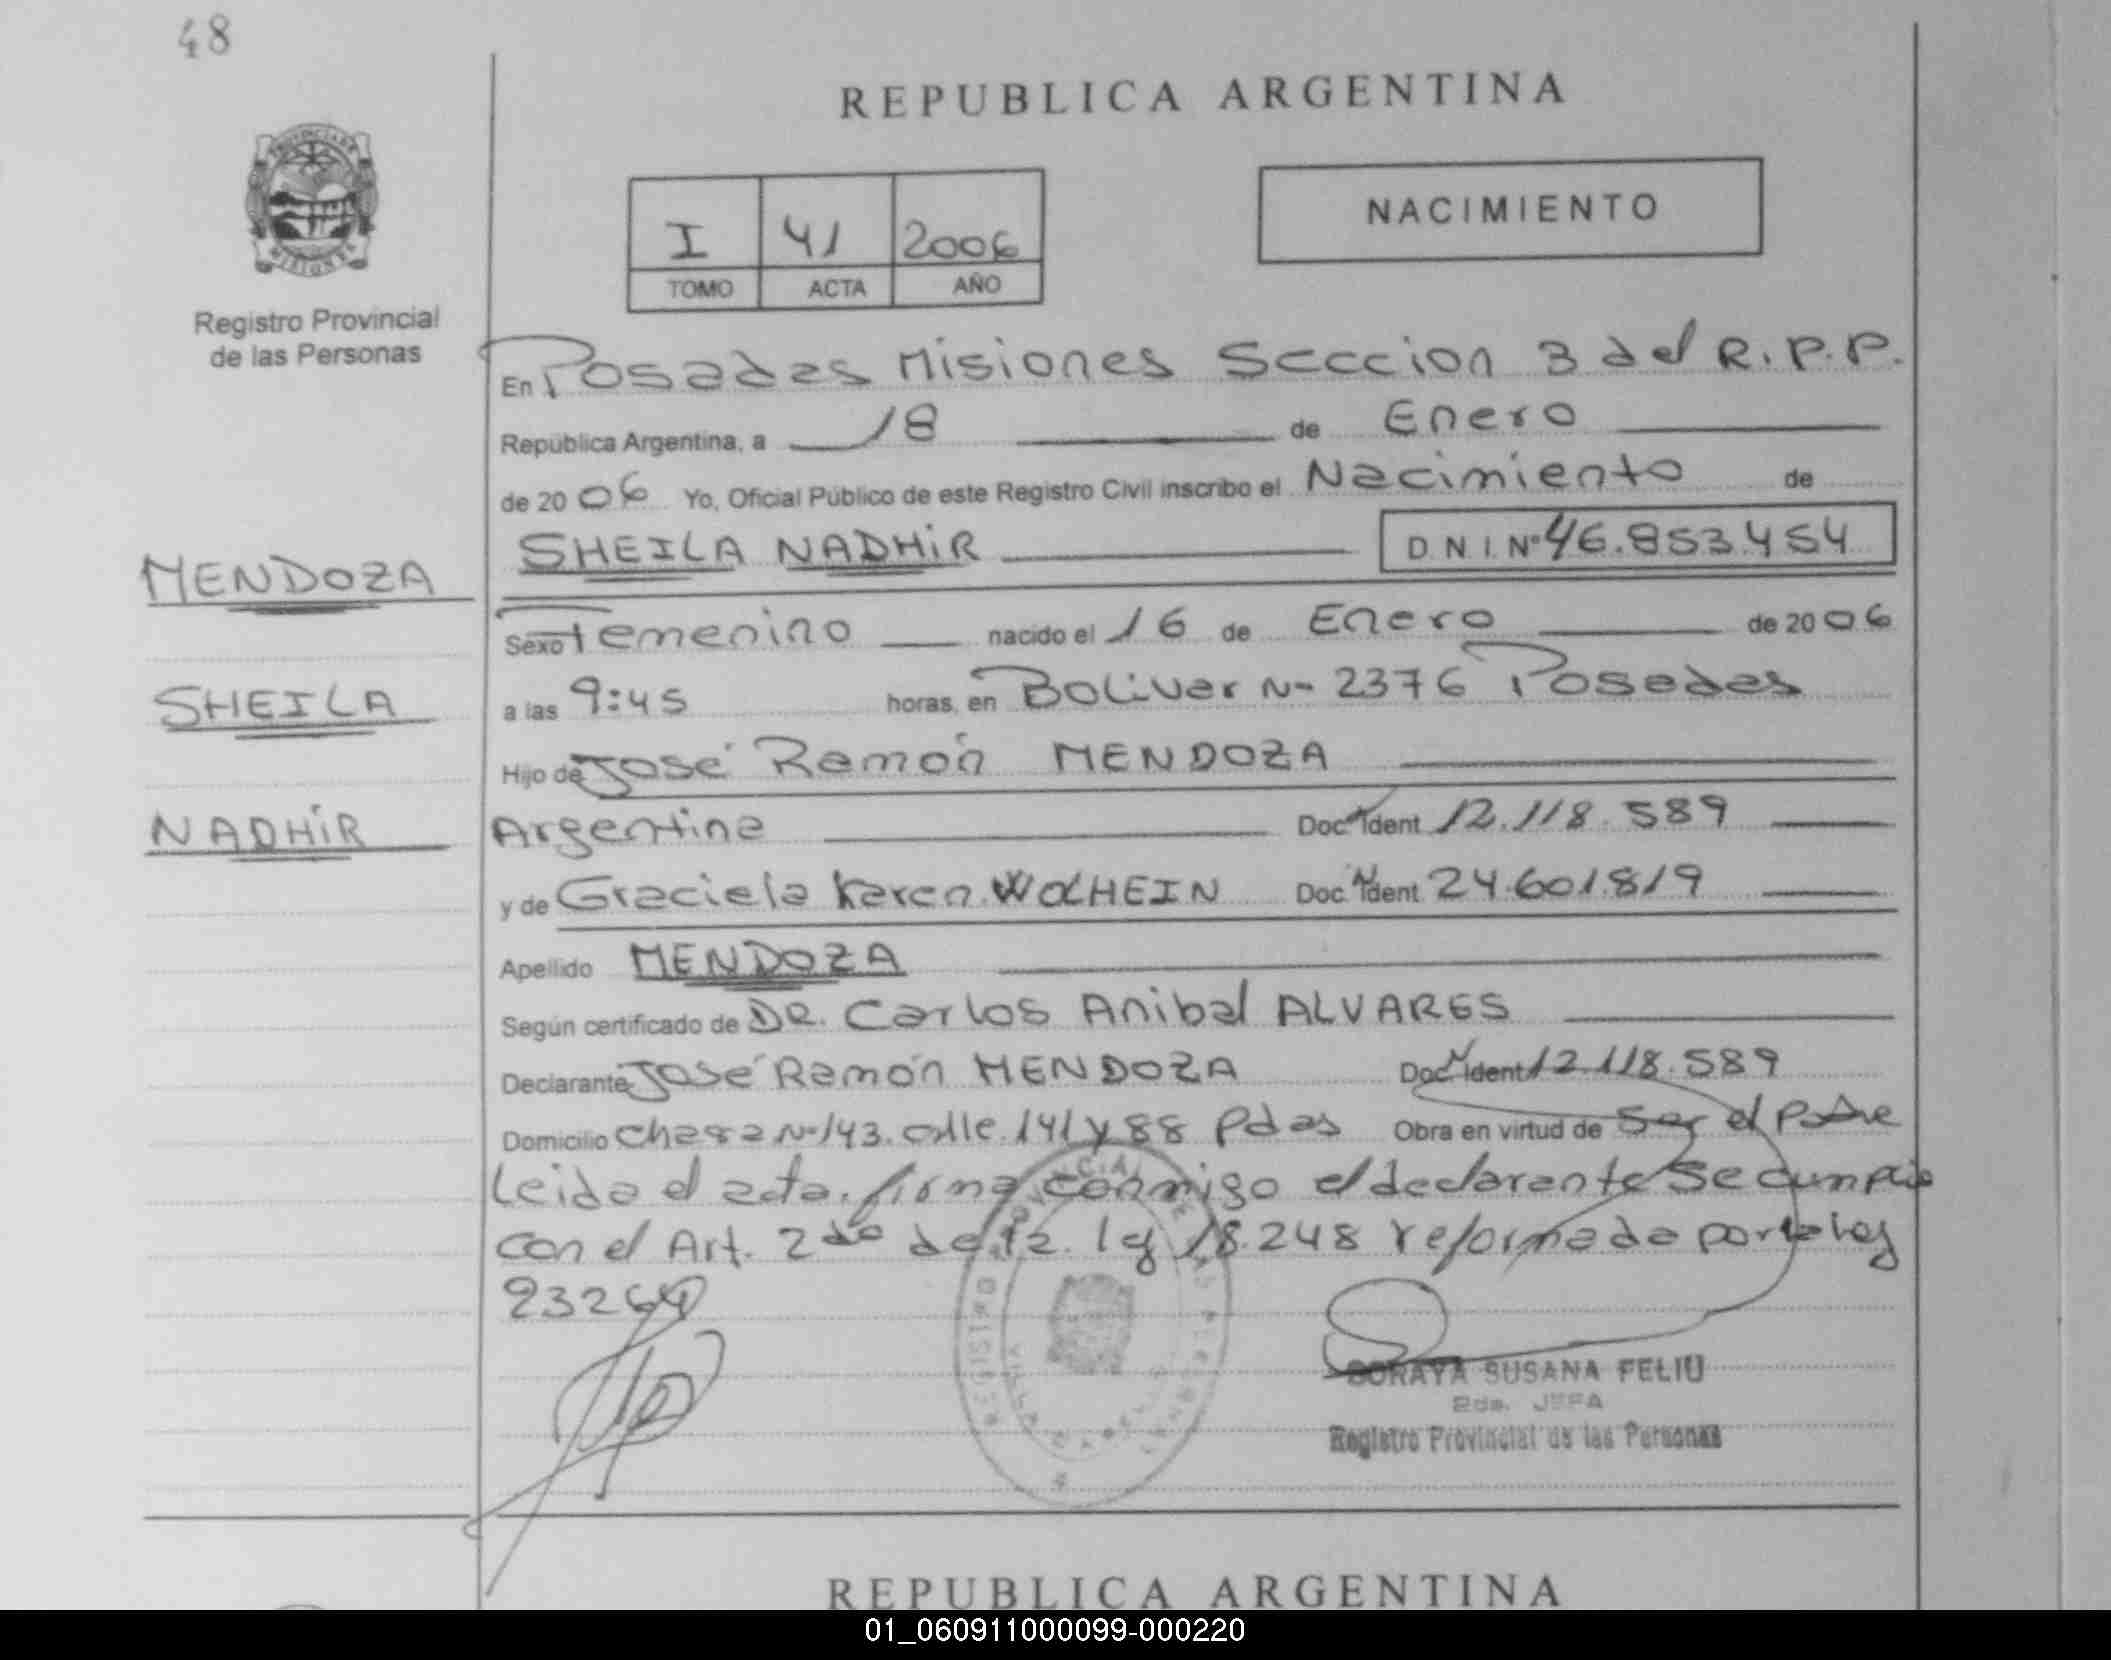 48
REPUBLICA ARGENTINA
PROVINCIA DE
MISIONES
Registro Provincial
de las Personas
NACIMIENTO
I 41 2006
TOMO ACTA AÑO
En Posadas Misiones Seccion 3 del R.P.P.
República Argentina, a 18 de Enero
de 2006 Yo, Oficial Público de este Registro Civil inscribo el Nacimiento de
SHEILA NADHiR D.N.I. Nº 46.853.454
MENDOZA
SHEILA
NADHiR
Sexo Femenino nacido el 16 de Enero de 2006
a las 9:45 horas, en Bolivar Nº 2376 Posadas
Hijo de José Ramón MENDOZA
Argentina Doc. Ident 12.118.589
y de Graciela Karen WOLHEIN Doc. Ident 24.601.819
Apellido MENDOZA
Según certificado de DR. Carlos Anibal ALVARES
Declarante José Ramón MENDOZA Doc. Ident 12.118.589
Domicilio Nº 143. calle 141 y 88 Pdas Obra en virtud de Ser el Padre
Leida el acta. firma conmigo el declarante Se cumplio
con el Art. 2do de la ley 18.248 reformada por la ley
23264
SORAYA SUSANA FELIU
2da. JEFA
Registro Provincial de las Personas
REPUBLICA ARGENTINA
01_060911000099-000220